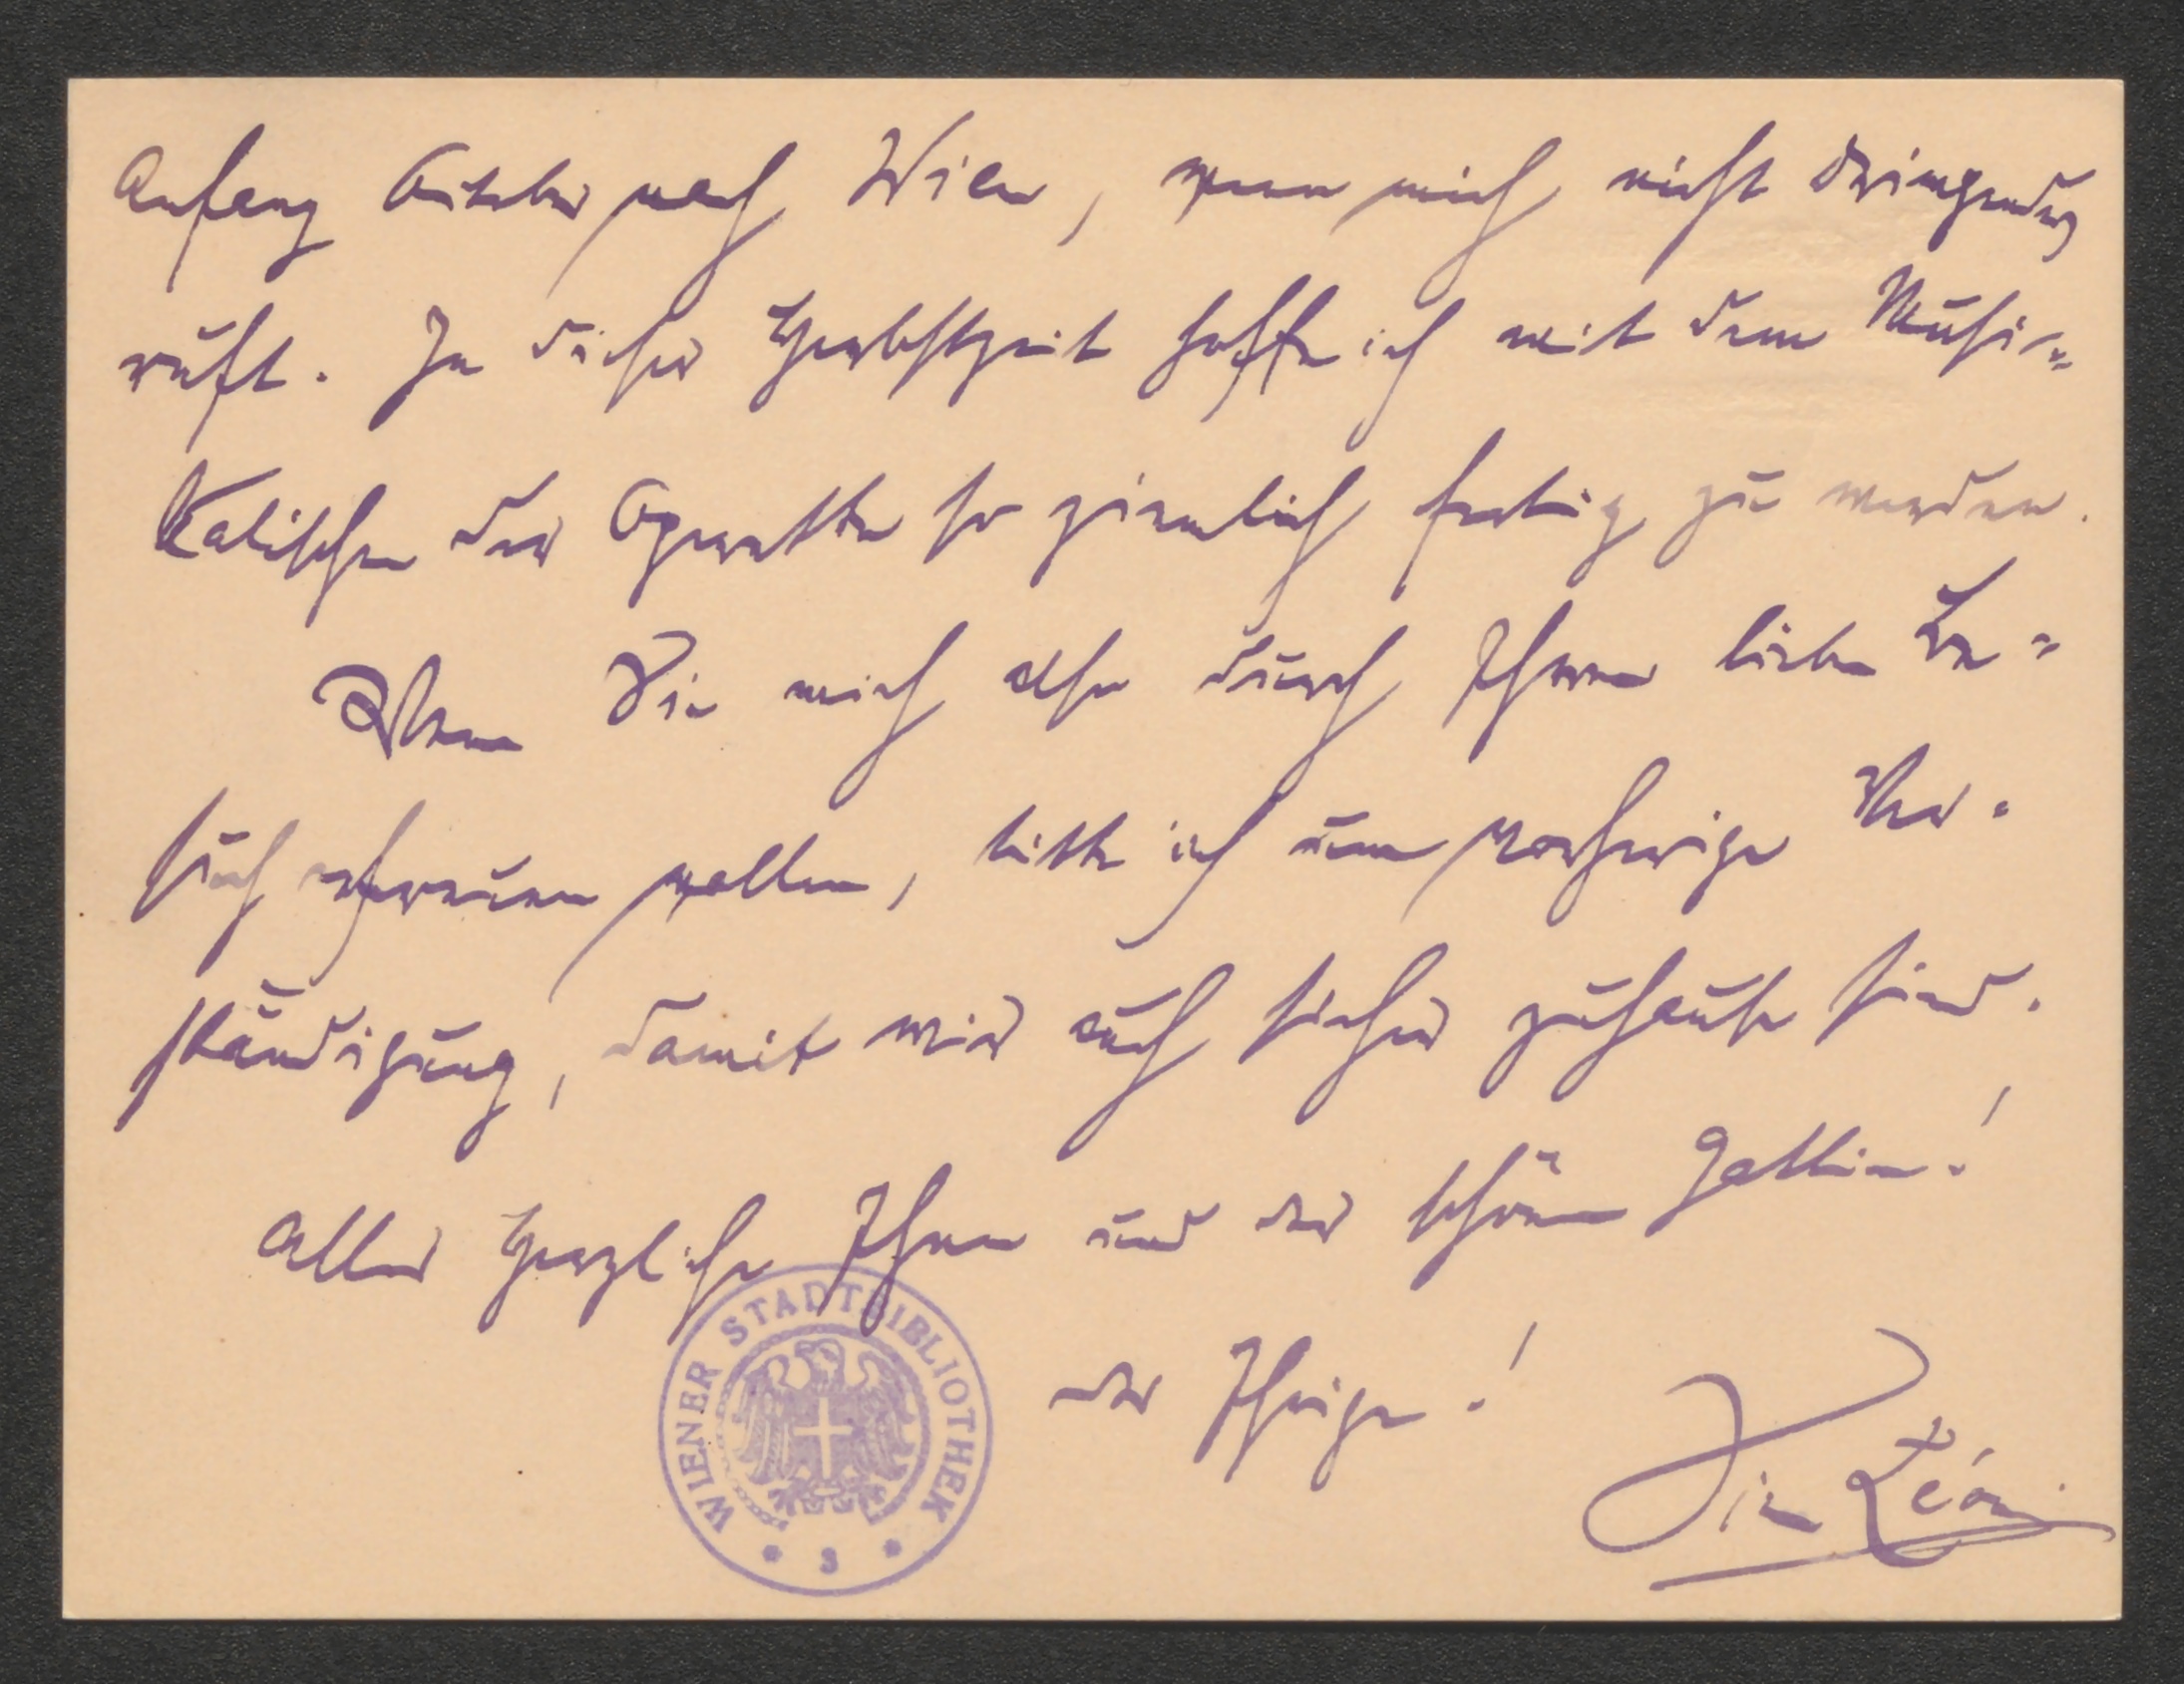 Anfang Oktober nach Wien, wenn mich nicht dringendes
ruft. In dieser Herbstzeit hoffe ich mit dem Musi-
kalischen der Operette so ziemlich fertig zu werden.
Wenn Sie mich also durch Ihren lieben Be-
such erfreuen wollen, bitte ich um vorherige Ver-
ständigung, damit wir auch sicher zuhause sind.
Alles Herzliche Ihnen und der schönen Gattin!
der Ihrige!
Vic Léon
WIENER STADTBIBLIOTHEK
* 3 *